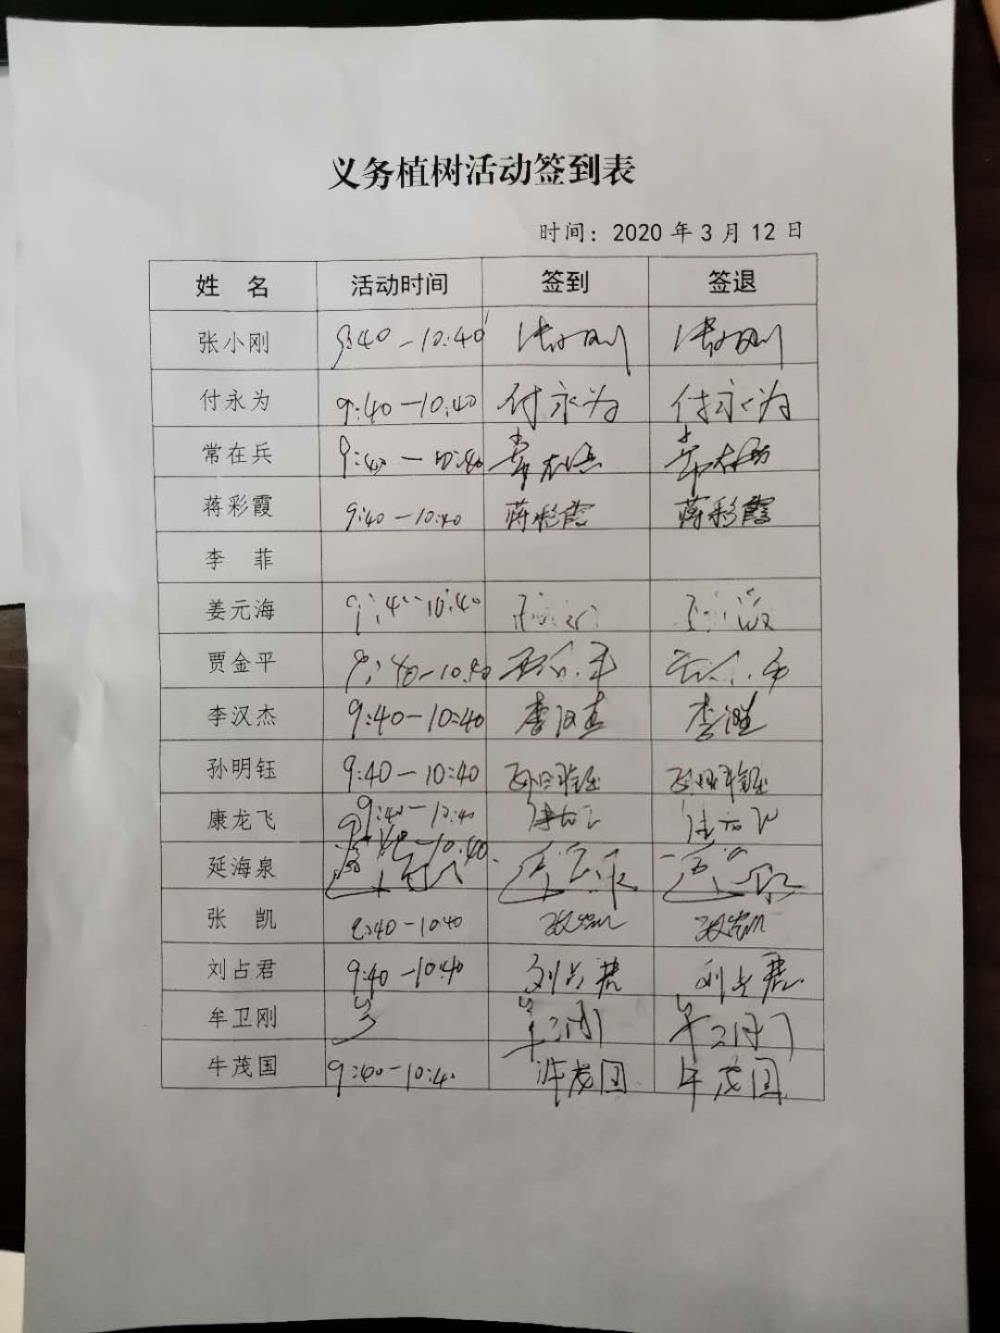 义务植树活动签到表
时间：2020年3月12日
姓 名 活动时间 签到 签退
张小刚 9:40-10:40 张小刚 张小刚
付永为 9:40-10:40 付永为 付永为
常在兵 9:40-10:40 常在兵 常在兵
蒋彩霞 9:40-10:40 蒋彩霞 蒋彩霞
李 菲
姜元海 9:40-10:40
贾金平 9:40-10:40
李汉杰 9:40-10:40 李汉杰 李汉杰
孙明钰 9:40-10:40 孙明钰 孙明钰
康龙飞 9:40-10:40 康龙飞 康龙飞
延海泉 10:40
张 凯 9:40-10:40 张凯 张凯
刘占君 9:40-10:40 刘占君 刘占君
牟卫刚 牟卫刚 牟卫刚
牛茂国 9:40-10:40 牛茂国 牛茂国